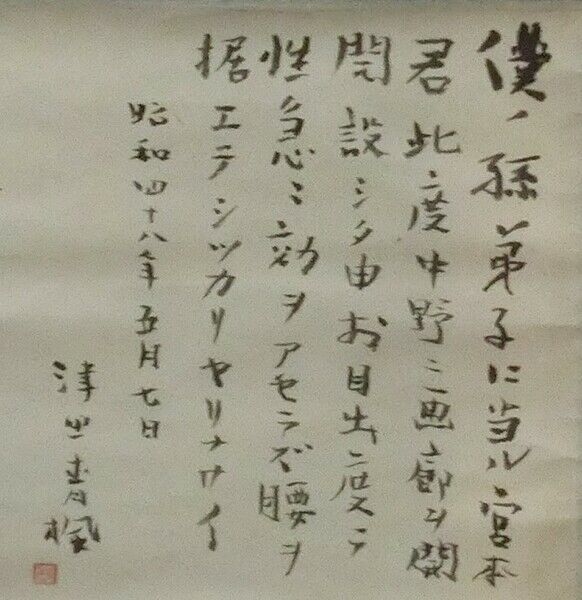 僕ノ孫弟子に当ル宮本
君此度中野ニ画廊ヲ開
開設シタ由お目出度ウ
性急ニ効ヲアセラズ腰ヲ
据エテシツカリヤリナサイ
昭和四十八年五月七日
津田青楓